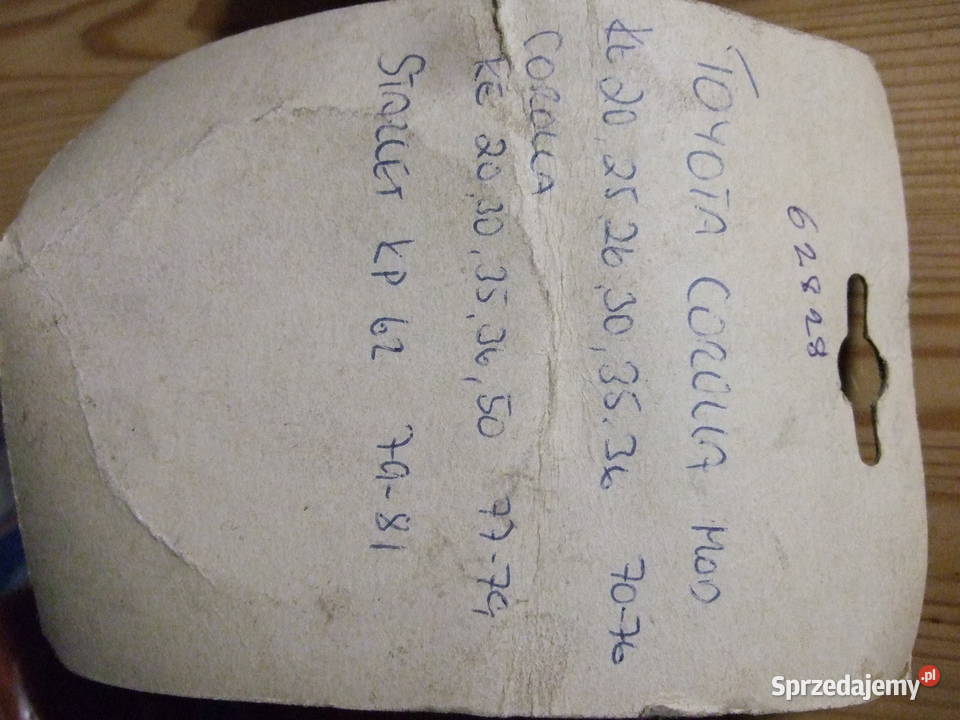 62828
TOYOTA COROLLA MOD
KE 20, 25, 26, 30, 35. 36 70-76
COROLLA
KE 20, 30, 35, 36, 50 77-79
STARLET KP 62 79-81
Sprzedajemy.pl